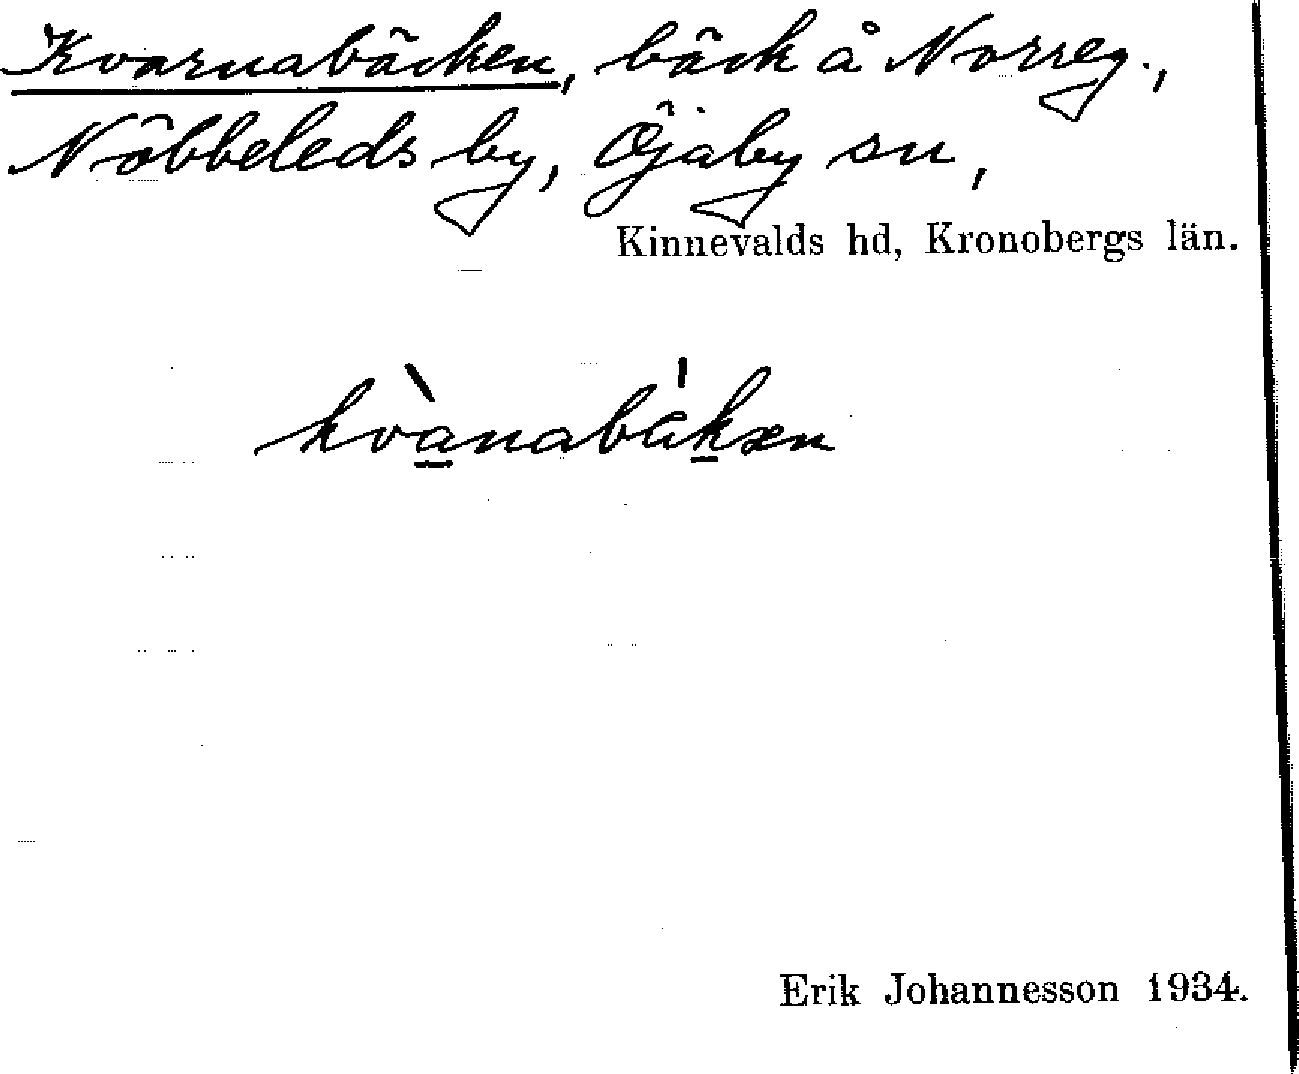 Kvarnabäcken, bäck å Norreg.,
Nöbbeleds by, Öjaby sn,
Kinnevalds hd, Kronobergs län.
kvànabákæn
Erik Johannesson 1934.